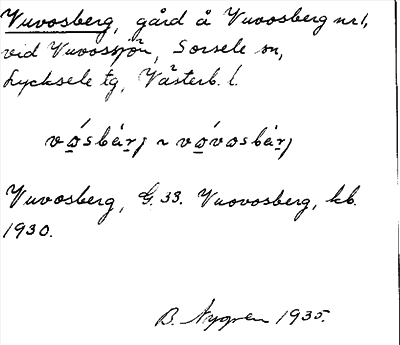 Vuvosberg, gård å Vuvosberg nr 1,
vid Vuvossjön, Sorsele sn,
Lycksele tg, Västerb. l.
vó̲sbär̲j ~ vó̲vosbär̲j
Vuvosberg, G. 33. Vuovosberg, kb.
1930.
B. Nygren 1935.